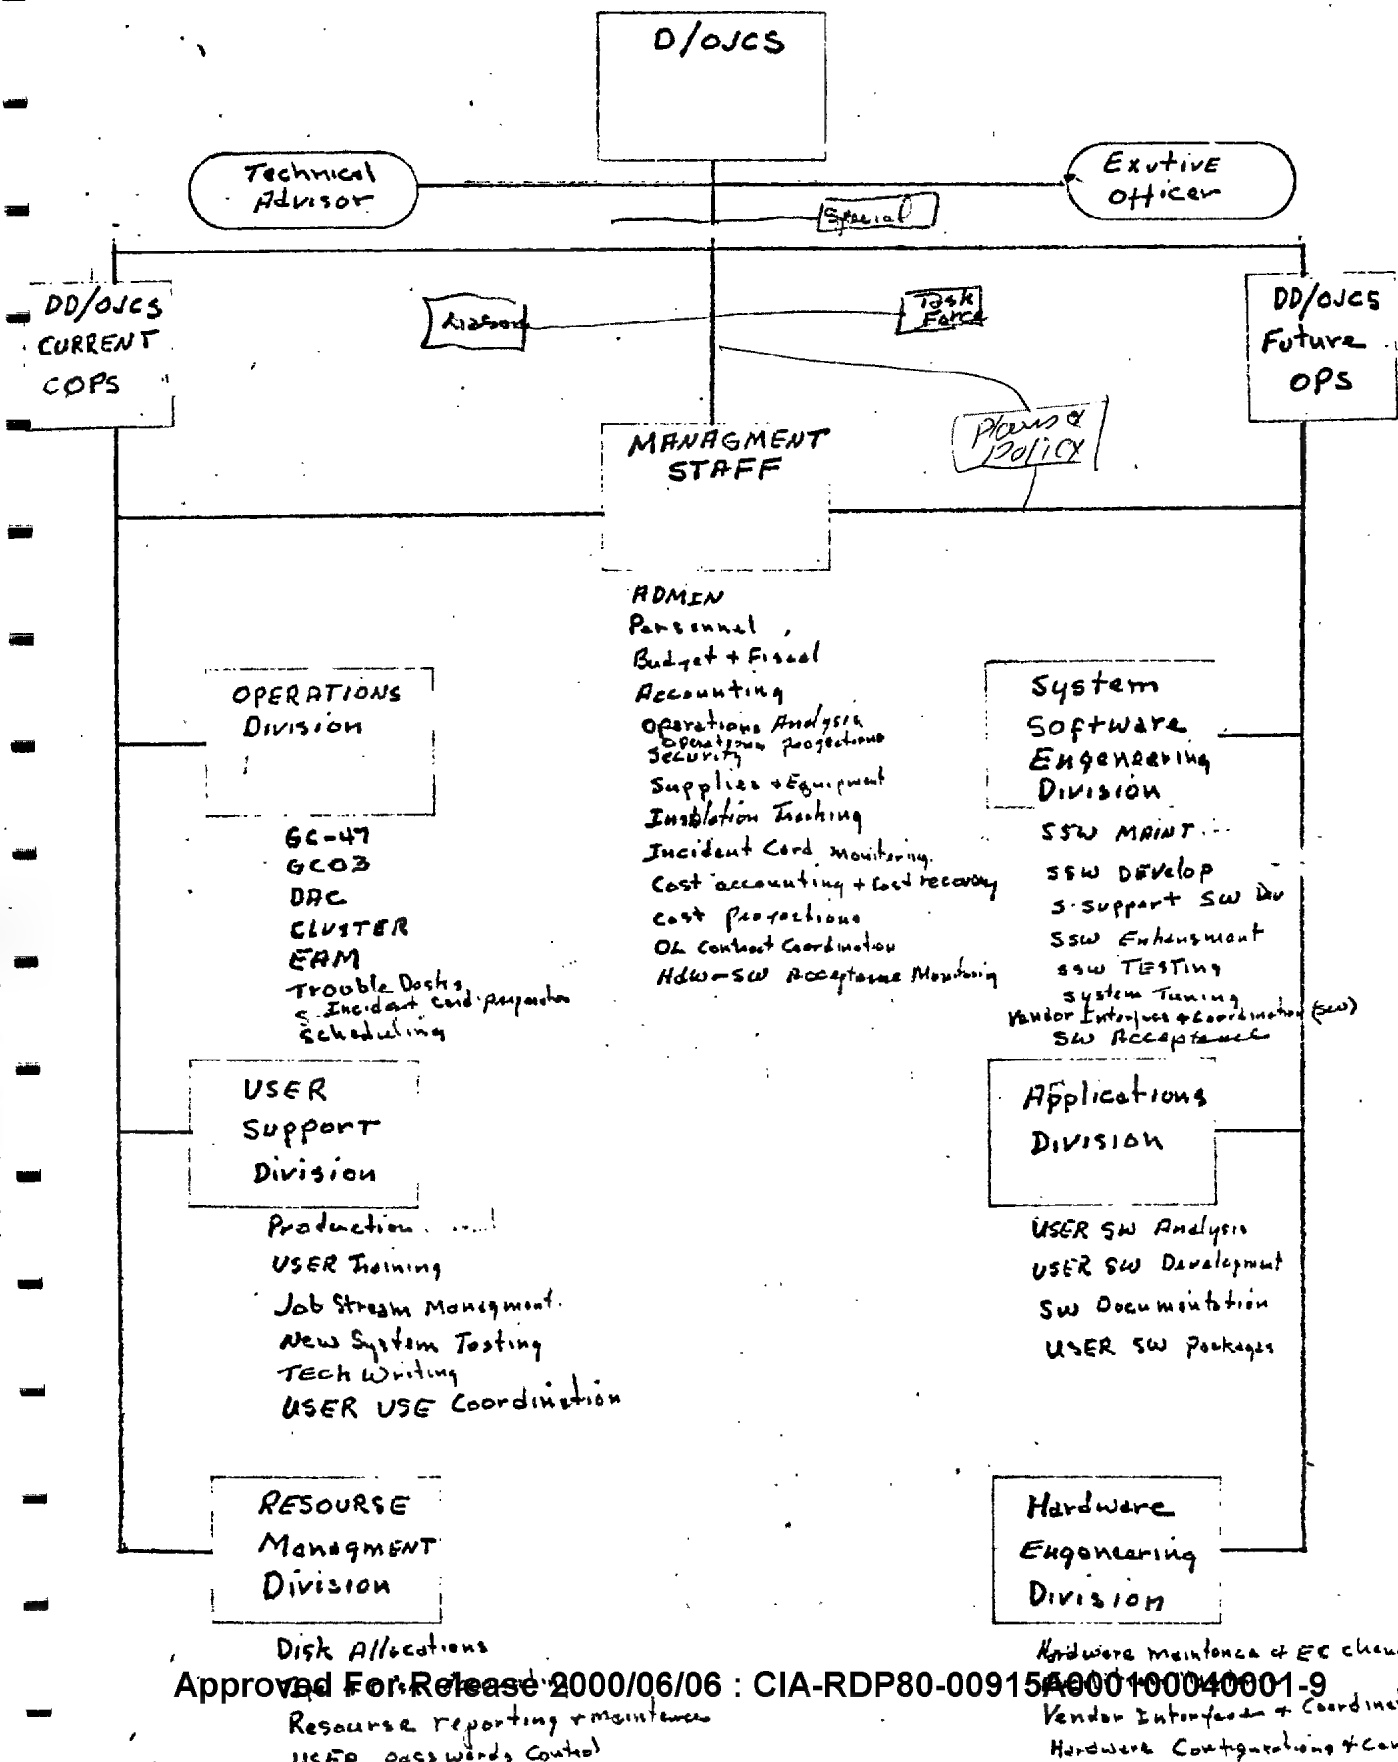 D/OJCS
Technical
Advisor
Exutive
Officer
Special
DD/OJCS
CURRENT
COPS
Liason
Task
Force
DD/OJCS
Future
OPS
Plans &
Policy
MANAGMENT
STAFF
ADMIN
Personnel
Budget + Fiscal
Accounting
Operations Analysis
Operations projections
Security
Supplies + Equipment
Tracking
Incident Card Monitoring
Cost accounting + Cost recovery
Cost Projections
OL Contract Coordination
HdW-SW Acceptance Monitoring
OPERATIONS
Division
GC-47
GC03
DAC
CLUSTER
EAM
Trouble Desks
Incident Card preparation
Scheduling
System
Software
Engeneering
Division
SSW MAINT
SSW DEvelop
S-Support SW Dev
SSW Enhansment
SSW TESTing
System Tuning
Vendor Interface + Coordination (SW)
SW Acceptance
USER
Support
Division
Production
USER Training
Job Stream Managment
New System Testing
TECh Writing
USER USE Coordination
Applications
Division
USER SW Analysis
USER SW Development
SW Documentation
USER SW Packages
RESOURSE
ManagMENT
Division
Disk Allocations
Resourse reporting + maintence
USER passwords Control
Hardware
Engeneering
Division
Hardware maintence & EC
Vendor Interface +
Hardware
Approved For Release 2000/06/06 : CIA-RDP80-00915A000100040001-9